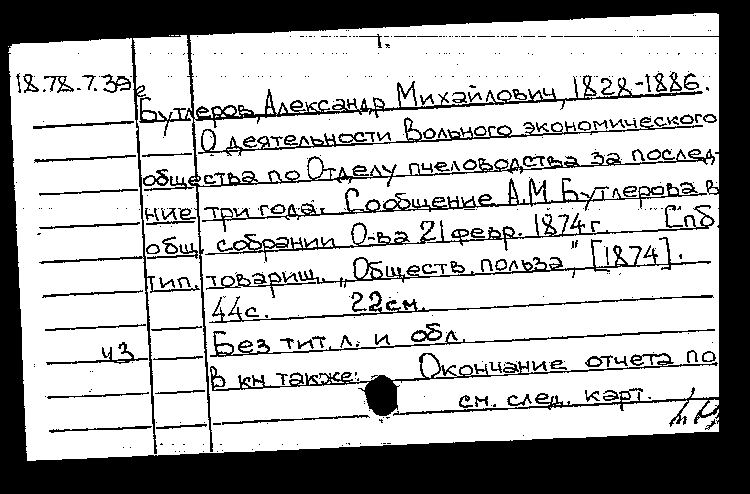 1.
18.78.7.39е
Бутлеров, Александр Михайлович, 1828-1886.
О деятельности Вольного экономического
общества по Отделу пчеловодства за послед-
ние три года. Сообщение А.М Бутлерова в
общ. собрании О-ва 21 февр. 1874 г. Спб.
тип. товарищ. „Обществ. польза", [1874].
44 с. 22 см.
чз Без тит. л. и обл.
В кн также: Окончание отчета по
см. след. карт.